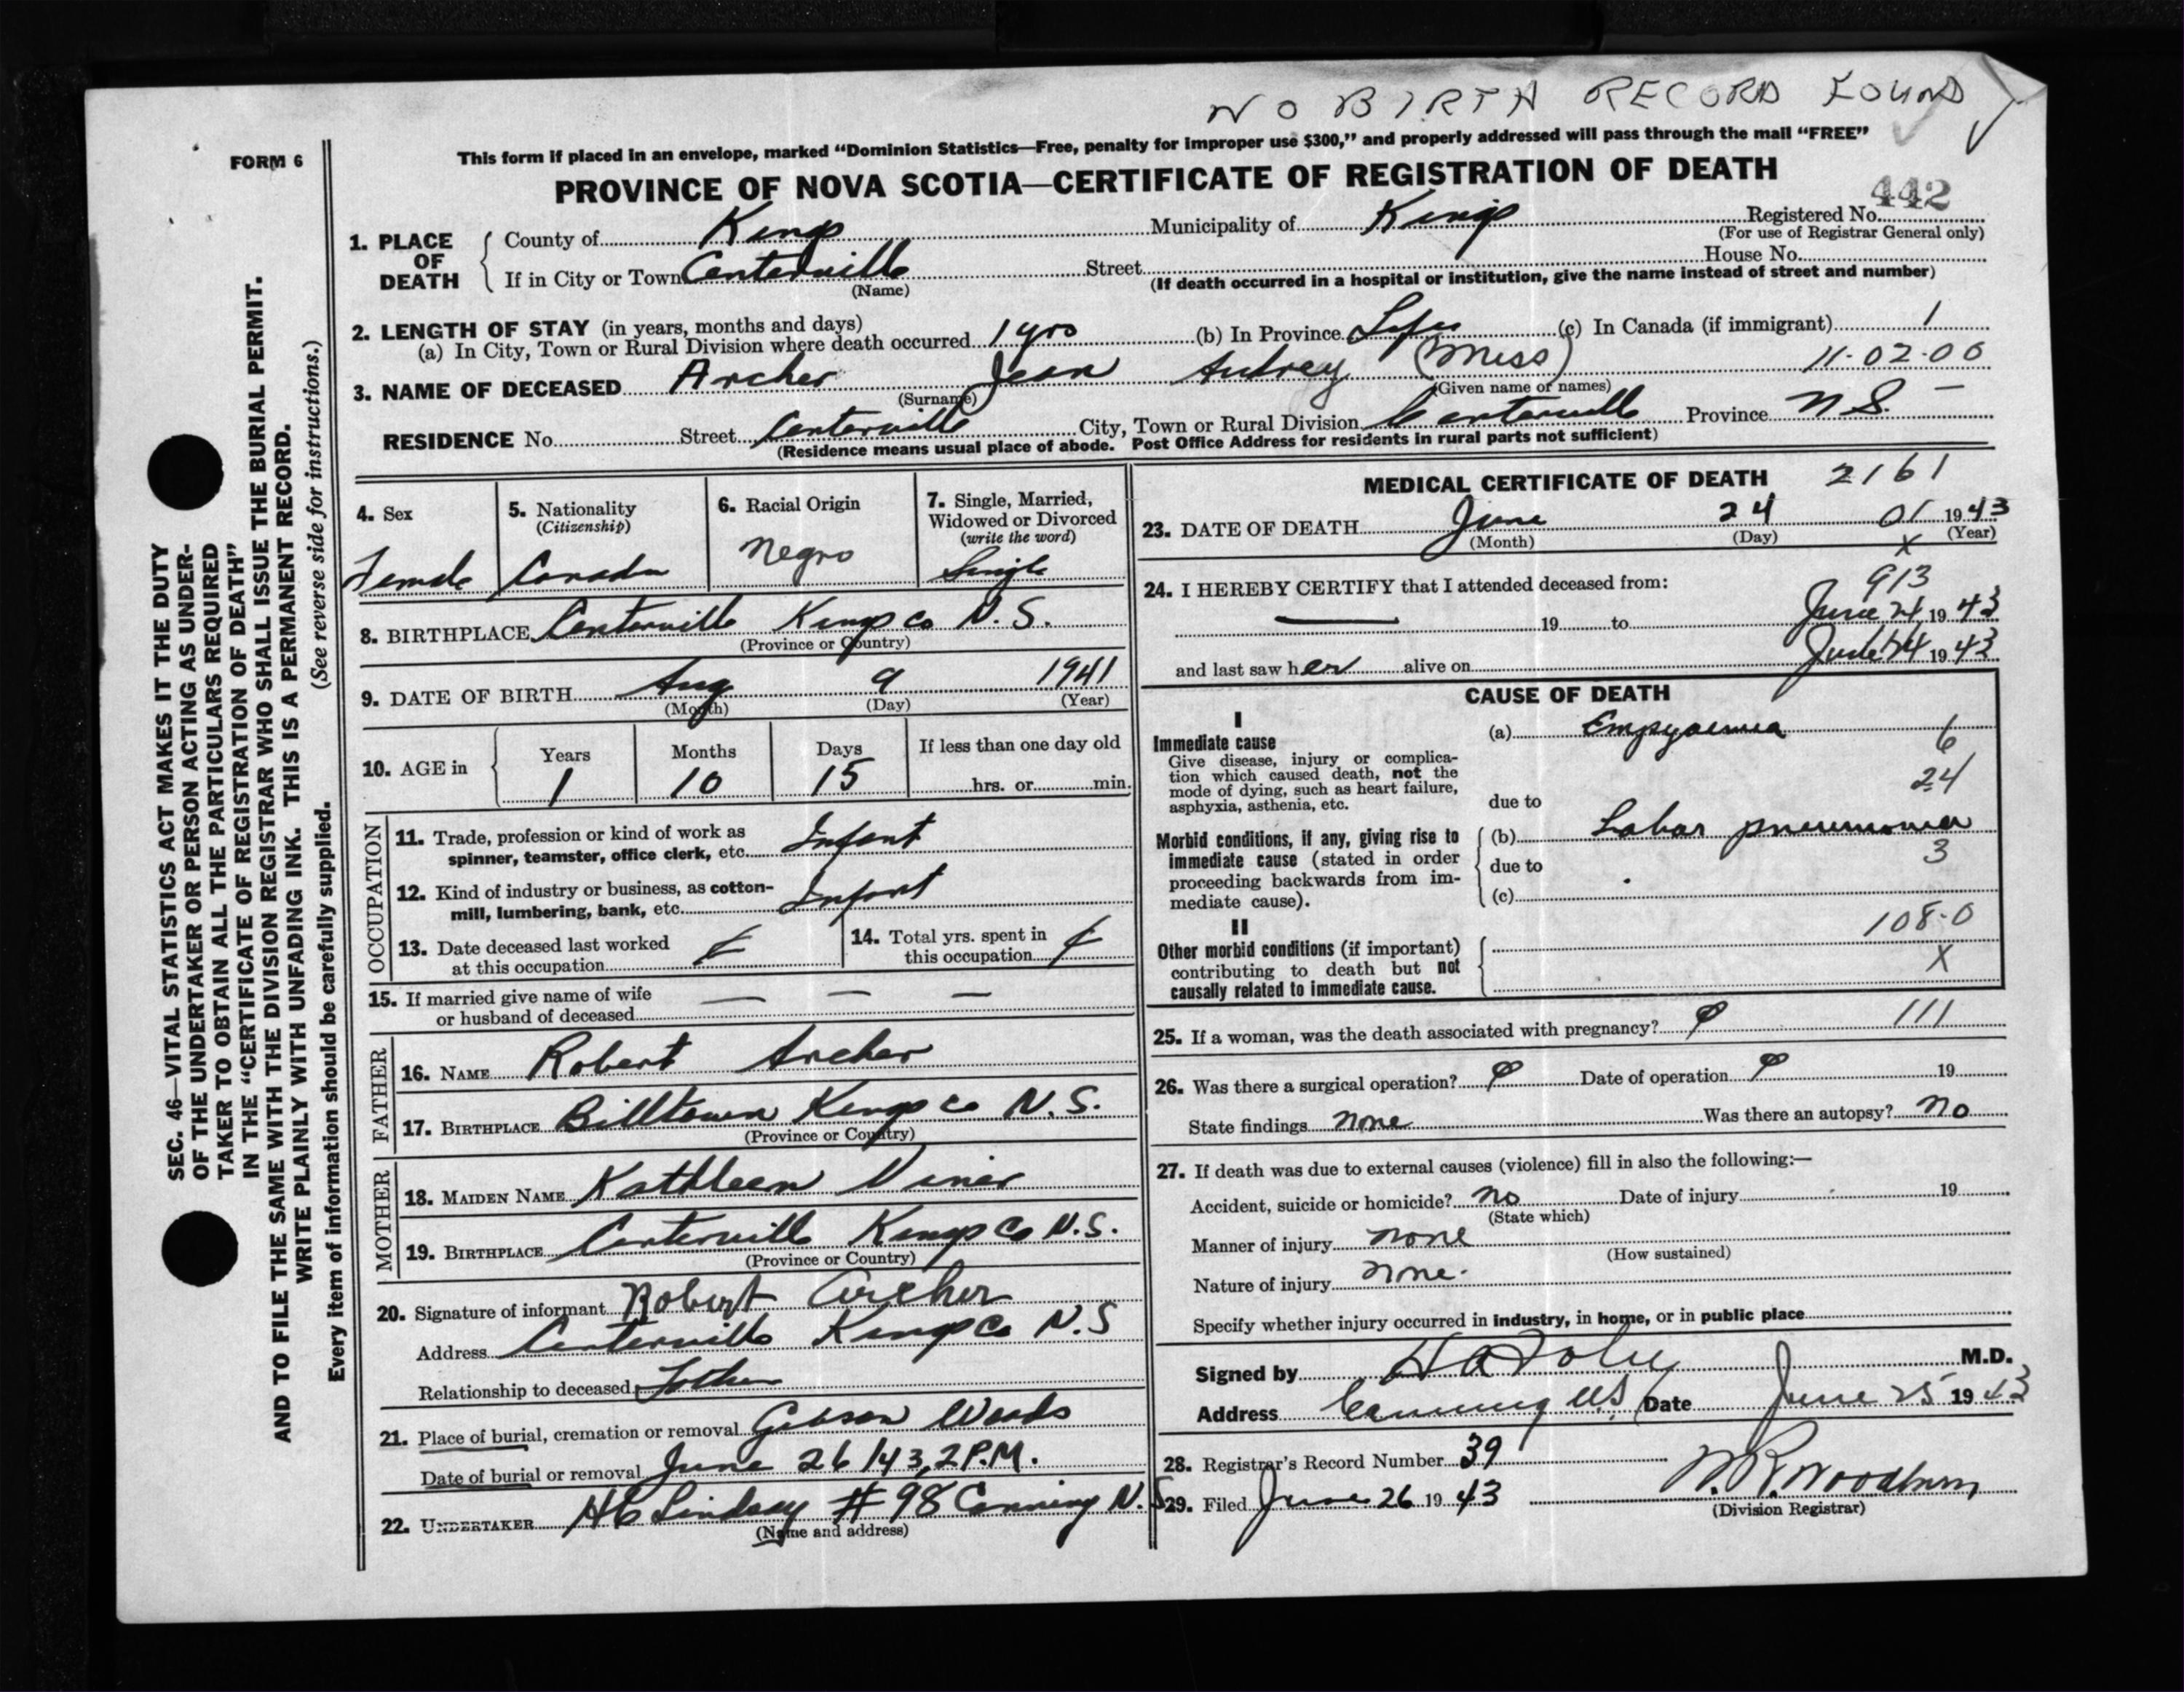 NO BIRTH RECORD FOUND
This form if placed in an envelope, marked “Dominion Statistics—Free, penalty for improper use $300,” and properly addressed will pass through the mail “FREE”
FORM 6
PROVINCE OF NOVA SCOTIA—CERTIFICATE OF REGISTRATION OF DEATH
442
1. PLACE OF DEATH County of Kings Municipality of Kings Registered No.
(For use of Registrar General only)
If in City or Town Centerville Street House No.
(Name) (If death occurred in a hospital or institution, give the name instead of street and number)
2. LENGTH OF STAY (in years, months and days)
(a) In City, Town or Rural Division where death occurred 1 yrs (b) In Province Life (c) In Canada (if immigrant) 1
11-02-00
3. NAME OF DECEASED Archer Jean Autrey (Miss)
(Surname) (Given name or names)
RESIDENCE No. Street Centerville City, Town or Rural Division Centerville Province N S. —
(Residence means usual place of abode. Post Office Address for residents in rural parts not sufficient)
4. Sex
Female
5. Nationality
(Citizenship)
Canada
6. Racial Origin
Negro
7. Single, Married,
Widowed or Divorced
(write the word)
Single
8. BIRTHPLACE Centerville Kings Co N.S.
(Province or Country)
9. DATE OF BIRTH Aug 9 1941
(Month) (Day) (Year)
10. AGE in Years Months Days If less than one day old
1 10 15 hrs. or min.
OCCUPATION
11. Trade, profession or kind of work as
spinner, teamster, office clerk, etc. Infant
12. Kind of industry or business, as cotton-
mill, lumbering, bank, etc. Infant
13. Date deceased last worked
at this occupation
14. Total yrs. spent in
this occupation
15. If married give name of wife — — —
or husband of deceased
FATHER
16. NAME Robert Archer
17. BIRTHPLACE Billtown Kings Co N.S.
(Province or Country)
MOTHER
18. MAIDEN NAME Kathleen Viner
19. BIRTHPLACE Centerville Kings Co N.S.
(Province or Country)
20. Signature of informant Robert Archer
Address Centerville Kings Co N.S
Relationship to deceased Father
21. Place of burial, cremation or removal Gibson Woods
Date of burial or removal June 26/43, 2 P.M.
22. UNDERTAKER H C Lindsay # 98 Canning N.S
(Name and address)
MEDICAL CERTIFICATE OF DEATH 2161
23. DATE OF DEATH June 24 01 1943
(Month) (Day) (Year)
X
24. I HEREBY CERTIFY that I attended deceased from:
913
— 19 to June 24, 1943
and last saw her alive on June 24 1943
CAUSE OF DEATH
I
Immediate cause
Give disease, injury or complica-
tion which caused death, not the
mode of dying, such as heart failure,
asphyxia, asthenia, etc.
(a) Empyaemia
6
24
due to
Morbid conditions, if any, giving rise to
immediate cause (stated in order
proceeding backwards from im-
mediate cause).
(b) Lobar pneumonia
3
due to
(c)
108-0
II
Other morbid conditions (if important)
contributing to death but not
causally related to immediate cause.
X
25. If a woman, was the death associated with pregnancy? 111
26. Was there a surgical operation? Date of operation 19
State findings None Was there an autopsy? No
27. If death was due to external causes (violence) fill in also the following:—
Accident, suicide or homicide? No Date of injury 19
(State which)
Manner of injury None
(How sustained)
Nature of injury None.
Specify whether injury occurred in industry, in home, or in public place
Signed by M.D.
Address Canning N.S. Date June 25 1943
28. Registrar's Record Number 39
29. Filed June 26 1943 Woodburn
(Division Registrar)
SEC. 46—VITAL STATISTICS ACT MAKES IT THE DUTY
OF THE UNDERTAKER OR PERSON ACTING AS UNDER-
TAKER TO OBTAIN ALL THE PARTICULARS REQUIRED
IN THE “CERTIFICATE OF REGISTRATION OF DEATH”
AND TO FILE THE SAME WITH THE DIVISION REGISTRAR WHO SHALL ISSUE THE BURIAL PERMIT.
WRITE PLAINLY WITH UNFADING INK. THIS IS A PERMANENT RECORD.
Every item of information should be carefully supplied. (See reverse side for instructions.)